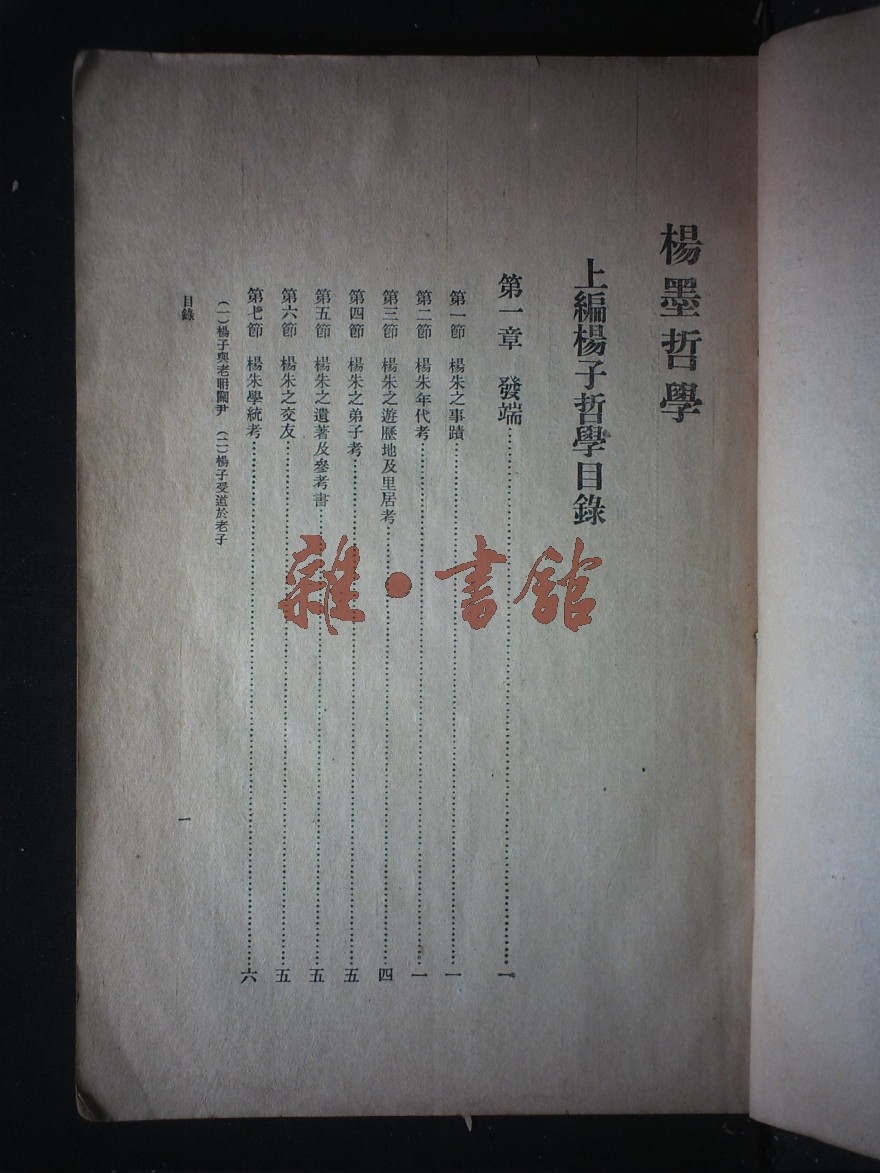 楊墨哲學
上編楊子哲學目錄
第一章　發端……一
第一節　楊朱之事蹟……一
第二節　楊朱年代考……一
第三節　楊朱之遊歷地及里居考……四
第四節　楊朱之弟子考……五
第五節　楊朱之遺著及參考書……五
第六節　楊朱之交友……五
第七節　楊朱學統考……六
（一）楊子與老聃關尹　（二）楊子受道於老子
目錄　一
雜·書館